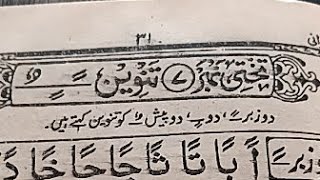 ۳۱
تختی نمبر ۷ تنوین ً ٍ ٌ
دو زبر ً ، دو زیر ٍ ، دو پیش ٌ کو تنوین کہتے ہیں۔
دو زبر ً اً بًا تًا ثًا جًا حًا خًا